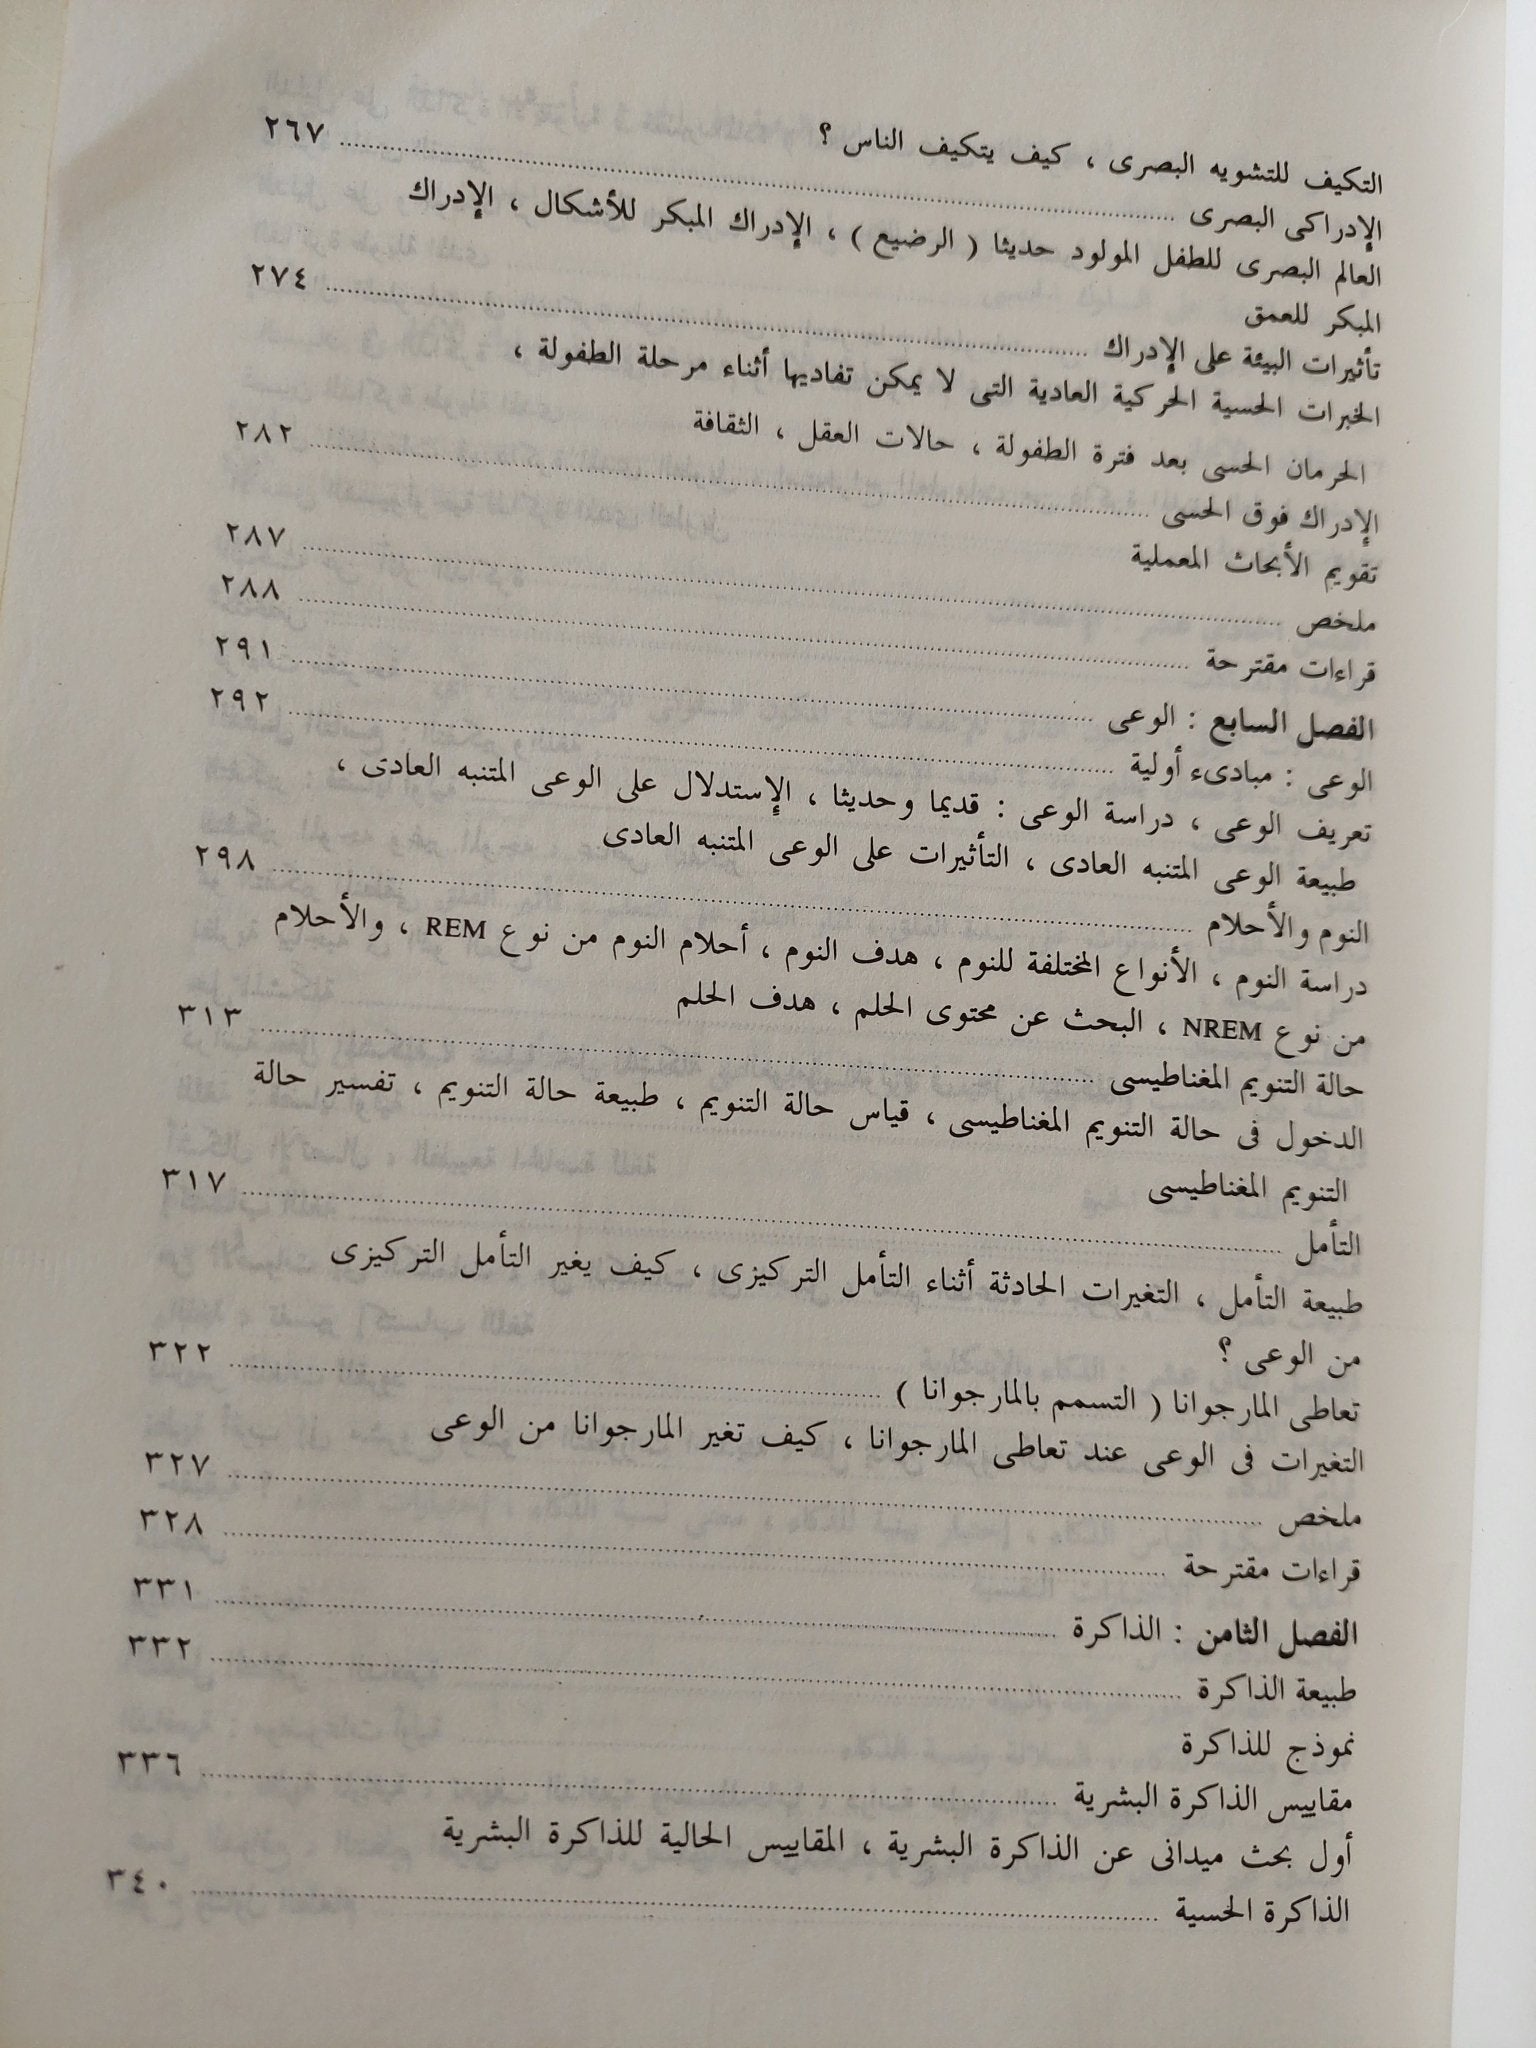 التكيف للتشويه البصرى ، كيف يتكيف الناس ؟
الإدراكى البصرى ........ ٢٦٧
العالم البصرى للطفل المولود حديثا ( الرضيع ) ، الإدراك المبكر للأشكال ، الإدراك
المبكر للعمق
تأثيرات البيئة على الإدراك ........ ٢٧٤
الخبرات الحسية الحركية العادية التى لا يمكن تفاديها أثناء مرحلة الطفولة ،
الحرمان الحسى بعد فترة الطفولة ، حالات العقل ، الثقافة
الإدراك فوق الحسى ........ ٢٨٢
تقويم الأبحاث المعملية
ملخص ........ ٢٨٧
قراءات مقترحة ........ ٢٨٨
الفصل السابع : الوعى ........ ٢٩١
الوعى : مبادىء أولية ........ ٢٩٢
تعريف الوعى ، دراسة الوعى : قديما وحديثا ، الإستدلال على الوعى المتنبه العادى ،
طبيعة الوعى المتنبه العادى ، التأثيرات على الوعى المتنبه العادى
النوم والأحلام ........ ٢٩٨
دراسة النوم ، الأنواع المختلفة للنوم ، هدف النوم ، أحلام النوم من نوع REM ، والأحلام
من نوع NREM ، البحث عن محتوى الحلم ، هدف الحلم
حالة التنويم المغناطيسى ........ ٣١٣
الدخول فى حالة التنويم المغناطيسى ، قياس حالة التنويم ، طبيعة حالة التنويم ، تفسير حالة
التنويم المغناطيسى
التأمل ........ ٣١٧
طبيعة التأمل ، التغيرات الحادثة أثناء التأمل التركيزى ، كيف يغير التأمل التركيزى
من الوعى ؟
تعاطى المارجوانا ( التسمم بالمارجوانا ) ........ ٣٢٢
التغيرات فى الوعى عند تعاطى المارجوانا ، كيف تغير المارجوانا من الوعى
ملخص ........ ٣٢٧
قراءات مقترحة ........ ٣٢٨
الفصل الثامن : الذاكرة ........ ٣٣١
طبيعة الذاكرة ........ ٣٣٢
نموذج للذاكرة
مقاييس الذاكرة البشرية ........ ٣٣٦
أول بحث ميدانى عن الذاكرة البشرية ، المقاييس الحالية للذاكرة البشرية
الذاكرة الحسية ........ ٣٤٠